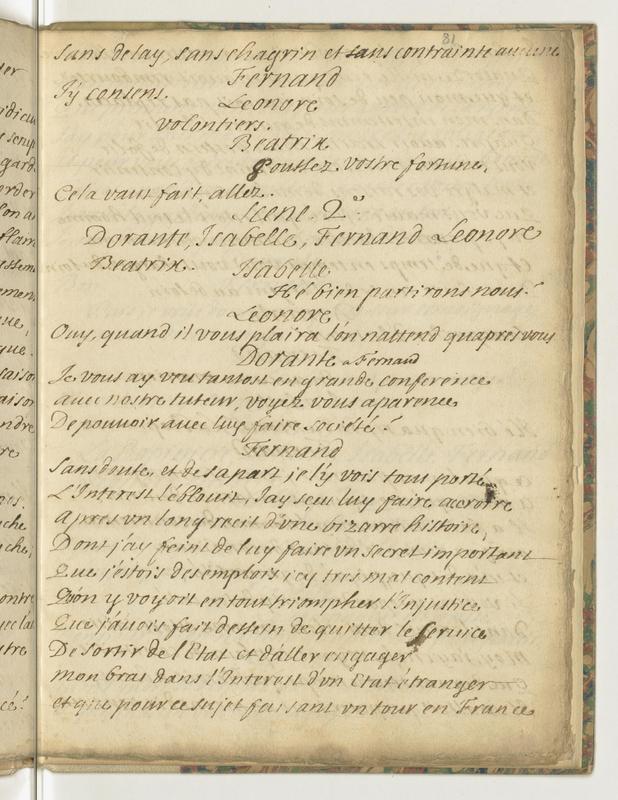 81
sans delay, sans chagrin et sans contrainte aucune
Fernand
J'y consens.
Leonore
volontiers.
Beatrix
Goustez vostre fortune,
Cela vaut fait, allez.
Scene. 2e.
Dorante, Isabelle, Fernand Leonore
Beatrix. Isabelle.
Hé bien partirons nous?
Leonore
Ouy, quand il vous plaira l'on n'attend qu'apres vous
Dorante a Fernand
Je vous ay veu tantost en grande conference
avec nostre tuteur, voyez vous aparence
De pouvoir avec luy faire société?
Fernand
Sans doute, et de sa part je l'y vois tout porté
L'Interest l'éblouit, J'ay sceu luy faire accroire
apres vn long recit d'vne bizarre histoire,
Dont j'ay feint de luy faire vn secret important
Que j'estois des emplois icy tres mal content
Qu'on y voyoit en tout triompher l'Injustice
Que j'auois fait dessein de quitter le service
De sortir de l'Etat et d'aller engager
mon bras dans l'Interest d'vn Etat étranger
et que pour ce sujet faisant vn tour en France